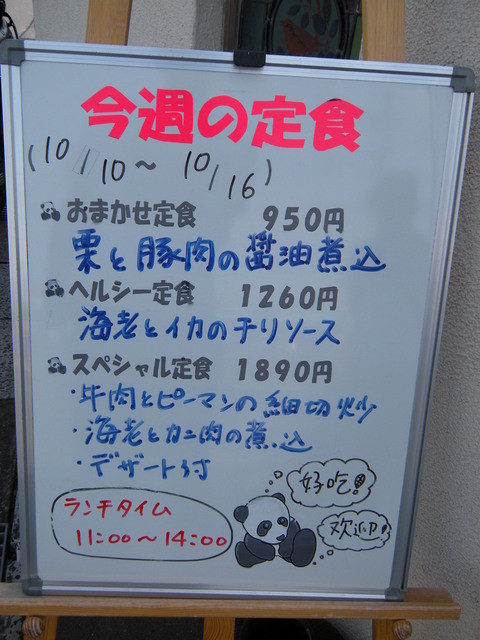 今週の定食
(10/10～10/16)
おまかせ定食 950円
栗と豚肉の醤油煮込
ヘルシー定食 1260円
海老とイカのチリソース
スペシャル定食 1890円
・牛肉とピーマンの細切炒
・海老とカニ肉の煮込
・デザート付
好吃!!
欢迎!
ランチタイム
11:00～14:00